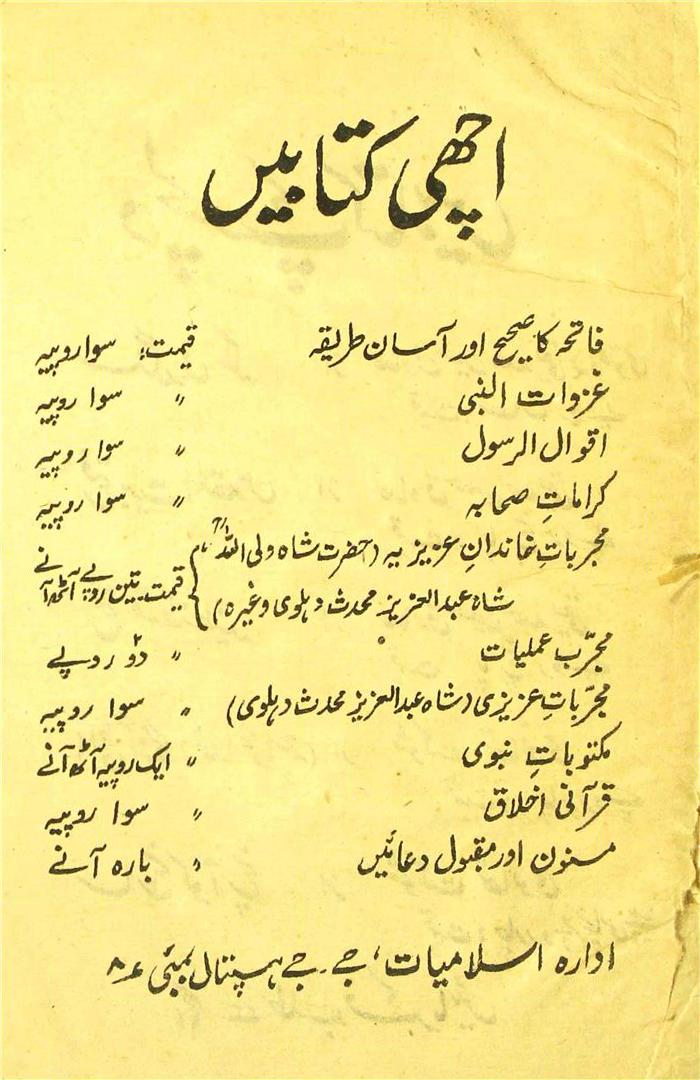 اچھی کتابیں
فاتحہ کا صحیح اور آسان طریقہ قیمت: سوا روپیہ
غزوات النبی " سوا روپیہ
اقوال الرسول " سوا روپیہ
کراماتِ صحابہ " سوا روپیہ
مجرباتِ خاندانِ عزیزیہ (حضرت شاہ ولی اللہؒ،
شاہ عبدالعزیز محدث دہلوی وغیرہ) قیمت تین روپے آٹھ آنے
مجرّب عملیات " دو روپے
مجرّباتِ عزیزی (شاہ عبدالعزیز محدث دہلوی) " سوا روپیہ
مکتوباتِ نبوی " ایک روپیہ آٹھ آنے
قرآنی اخلاق " سوا روپیہ
مسنون اور مقبول دعائیں " بارہ آنے
ادارہ اسلامیات، جے۔جے ہسپتال بمبئی ۸